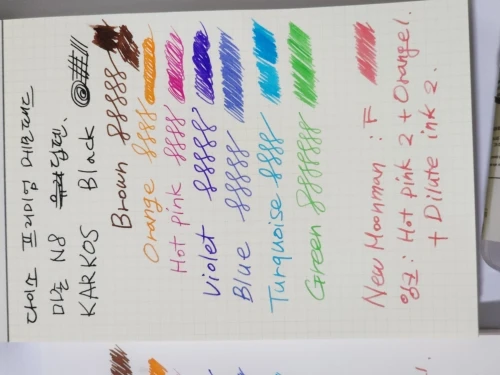 다이소 프리미엄 데코밴드
미손 N8
KARKOS Black
Brown
Orange
Hot pink
Violet
Blue
Turquoise
Green
New Moonman : F
잉크 : Hot pink 2 + Orange1.
+ Dilute ink 2.